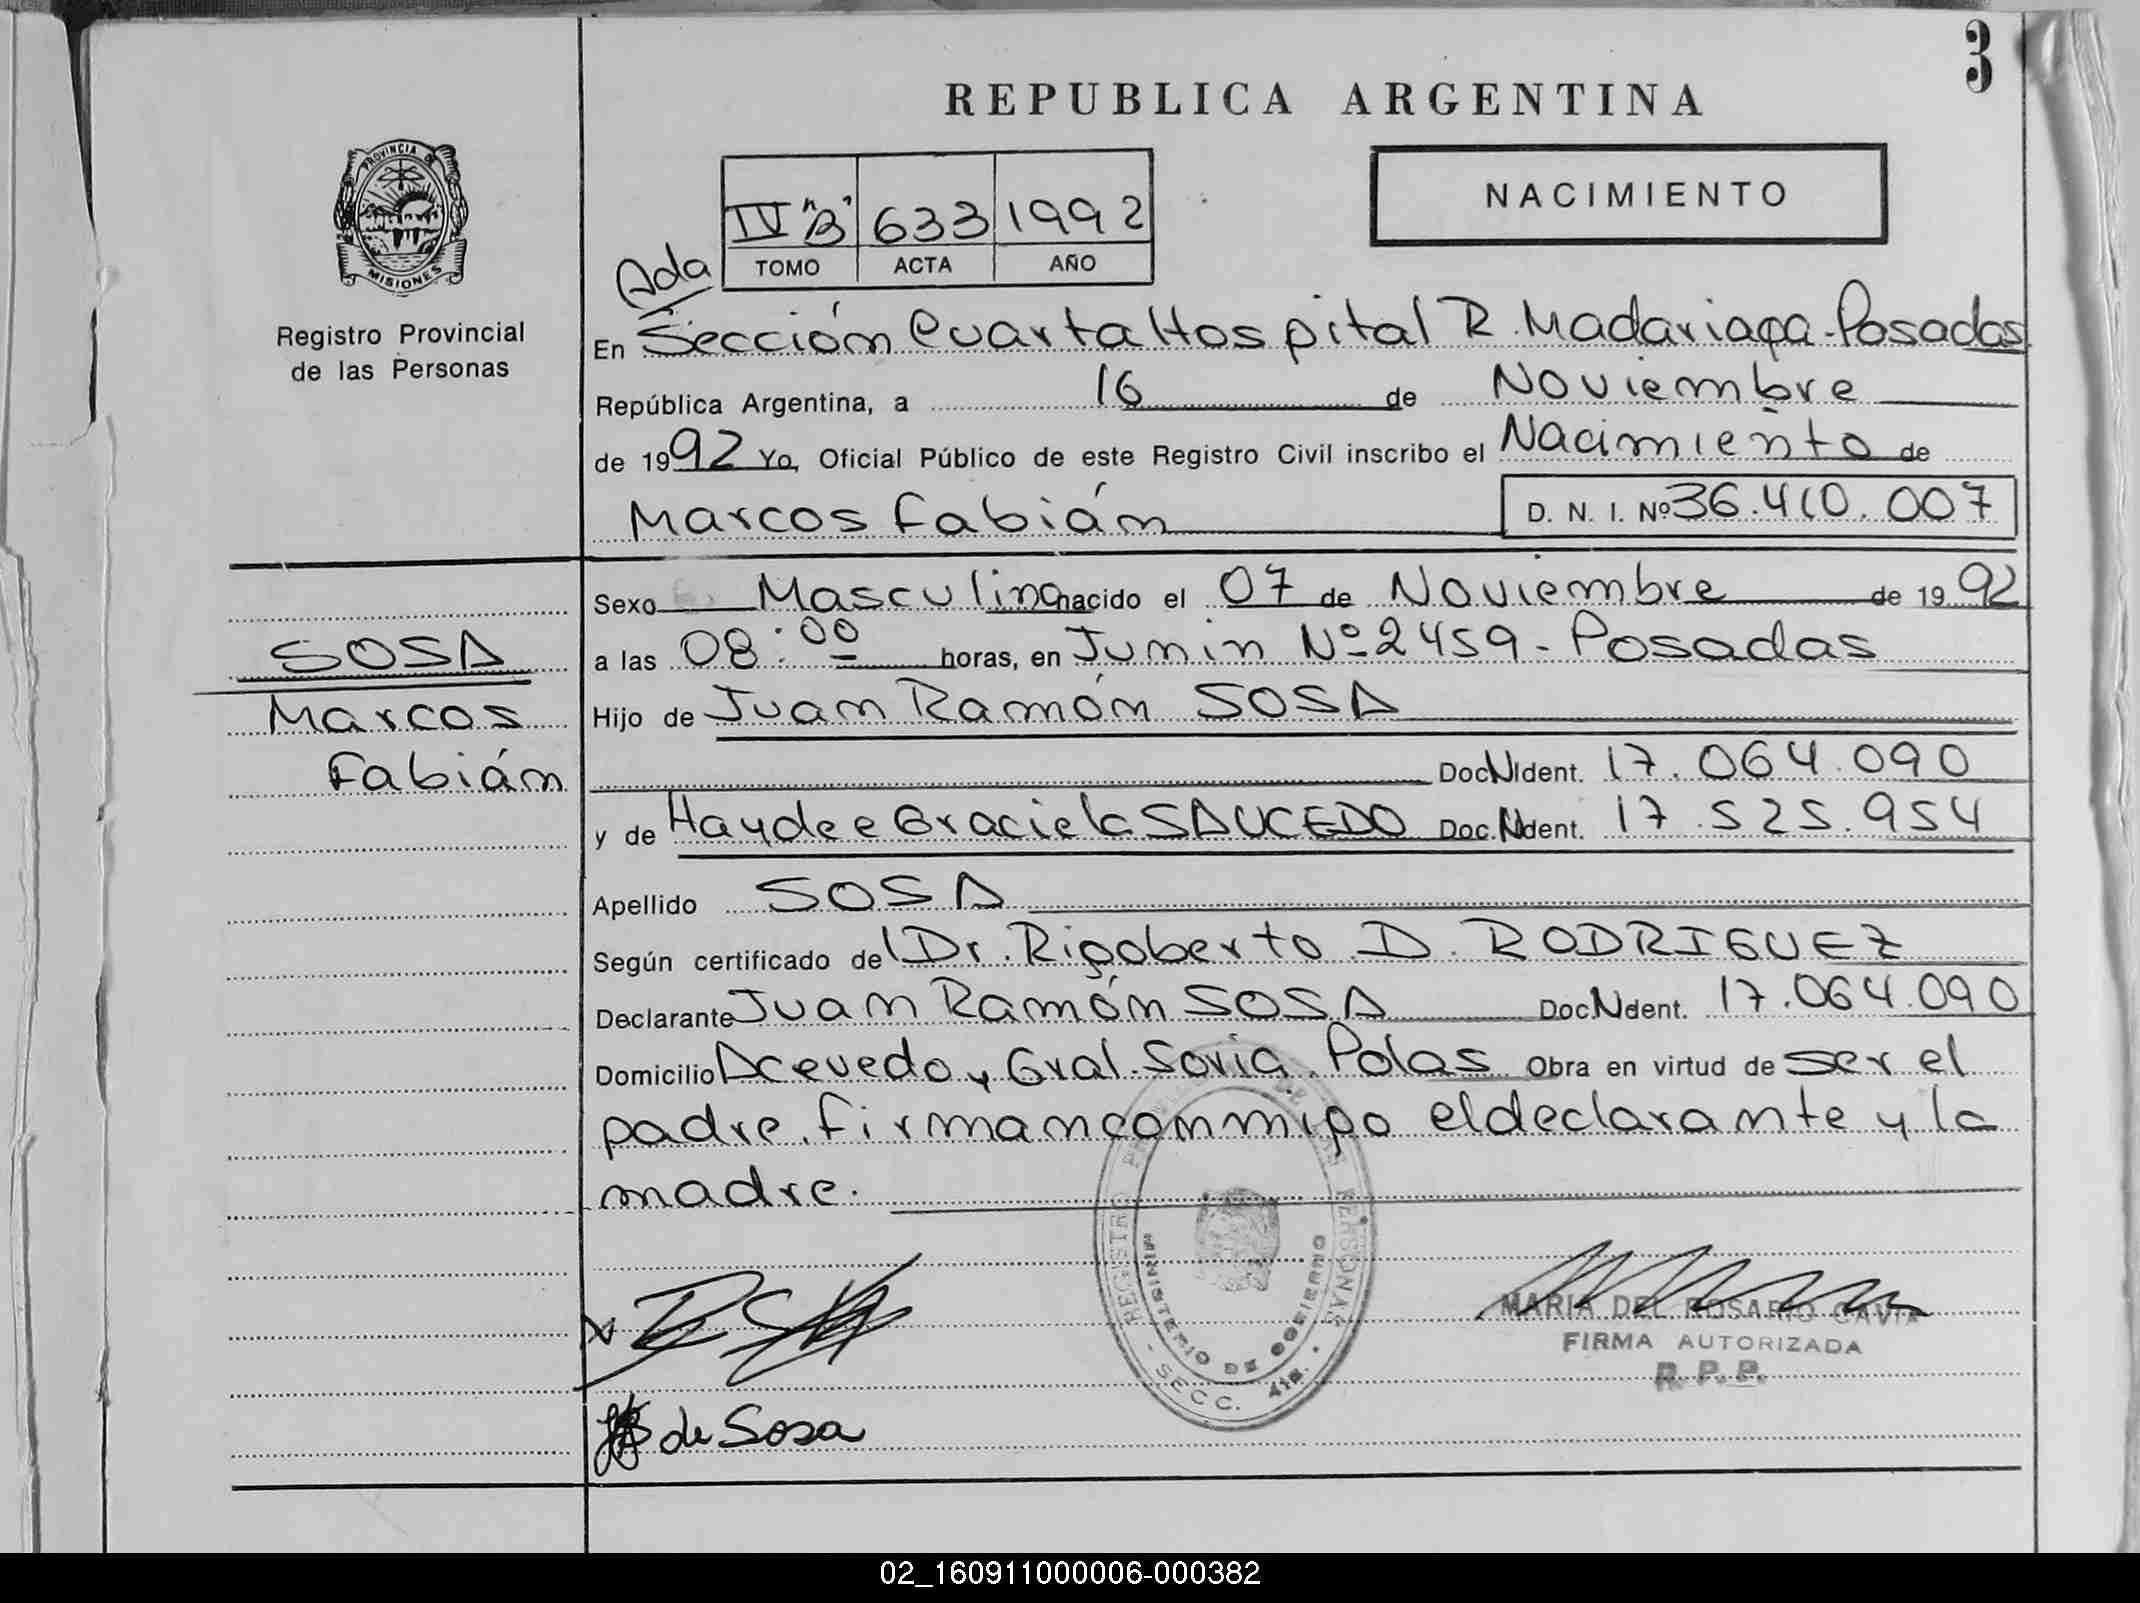 3
REPUBLICA ARGENTINA
PROVINCIA DE
MISIONES
Registro Provincial
de las Personas
NACIMIENTO
IV "B" 633 1992
TOMO ACTA AÑO
Ada
En Sección Cuarta Hospital R. Madariaga - Posadas
República Argentina, a 16 de Noviembre
de 1992 Yo, Oficial Público de este Registro Civil inscribo el Nacimiento de
Marcos Fabián D. N. I. Nº 36.410.007
Sexo Masculino nacido el 07 de Noviembre de 1992
SOSA
a las 08:00 horas, en Junin Nº 2459 - Posadas
Marcos
Hijo de Juan Ramón SOSA
Fabián
Doc N Ident. 17.064.090
y de Haydee Graciela SAUCEDO Doc. N Ident. 17.525.954
Apellido SOSA
Según certificado del Dr. Rigoberto D. RODRIGUEZ
Declarante Juan Ramón SOSA Doc. N Ident. 17.064.090
Domicilio Acevedo y Gral. Soria. Pdas Obra en virtud de ser el
padre. firman conmigo el declarante y la
madre.
REGISTRO PERSONAS
MINISTERIO DE GOBIERNO
- SECC. 4ta. -
MARIA DEL ROSARIO CAVIA
FIRMA AUTORIZADA
R. P. P.
de Sosa
02_160911000006-000382